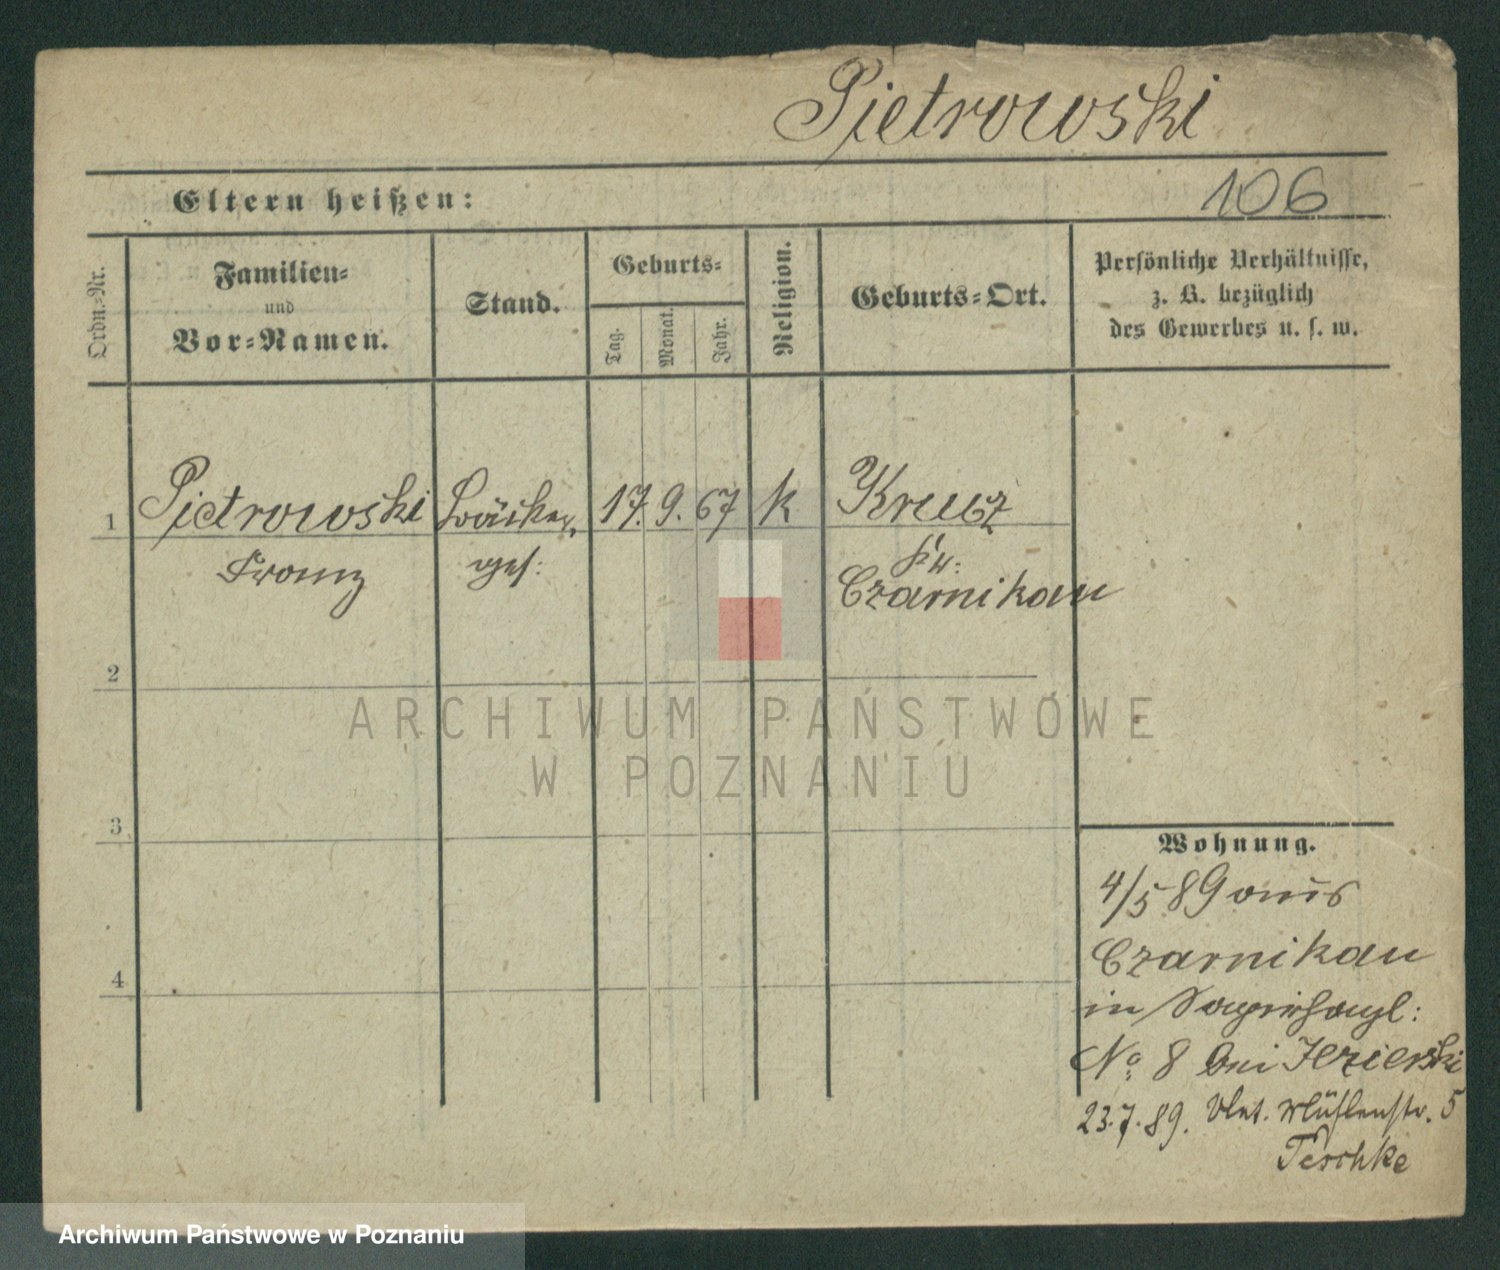 Pietrowski
106
Eltern heißen:
Ordn.-Nr.
Familien-
und
Vor-Namen.
Stand.
Geburts-
Tag.
Monat.
Jahr.
Religion.
Geburts-Ort.
Persönliche Verhältnisse,
z. B. bezüglich
des Gewerbes u. s. w.
1 Pietrowski Bäcker 17. 9. 67 k Kreuz
Franz ges: Kr:
Czarnikau
2
3
4
ARCHIWUM PAŃSTWOWE
W POZNANIU
Wohnung.
4/5 89 aus
Czarnikau
in
No 8 bei Jezierski
23.7.89. Mühlenstr. 5
Teschke
Archiwum Państwowe w Poznaniu